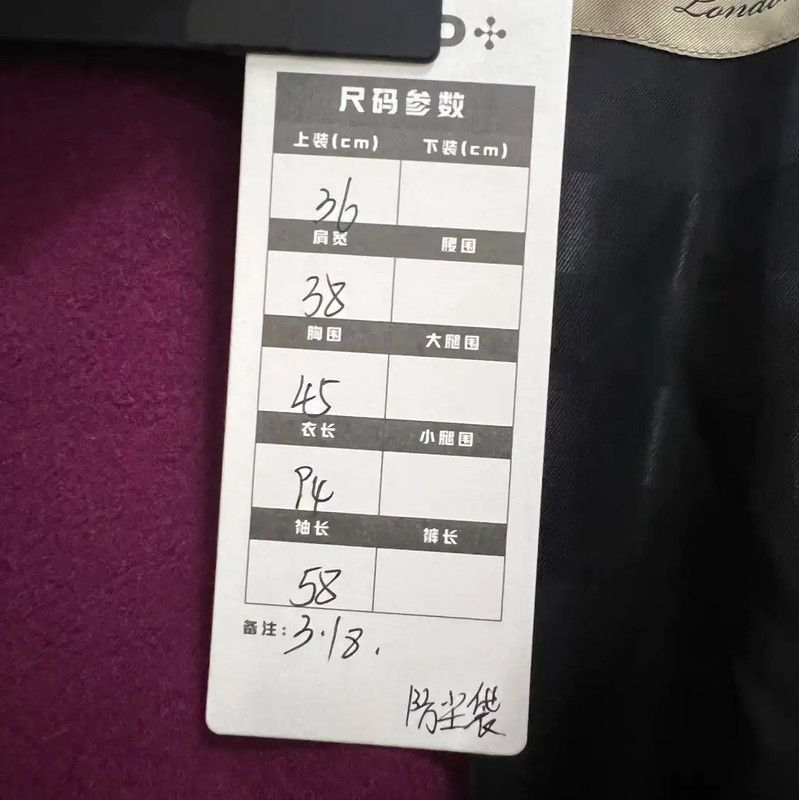 London
D
尺码参数
上装(cm) 下装(cm)
36
肩宽 腰围
38
胸围 大腿围
45
衣长 小腿围
94
袖长 裤长
58
备注: 3.18.
防尘袋